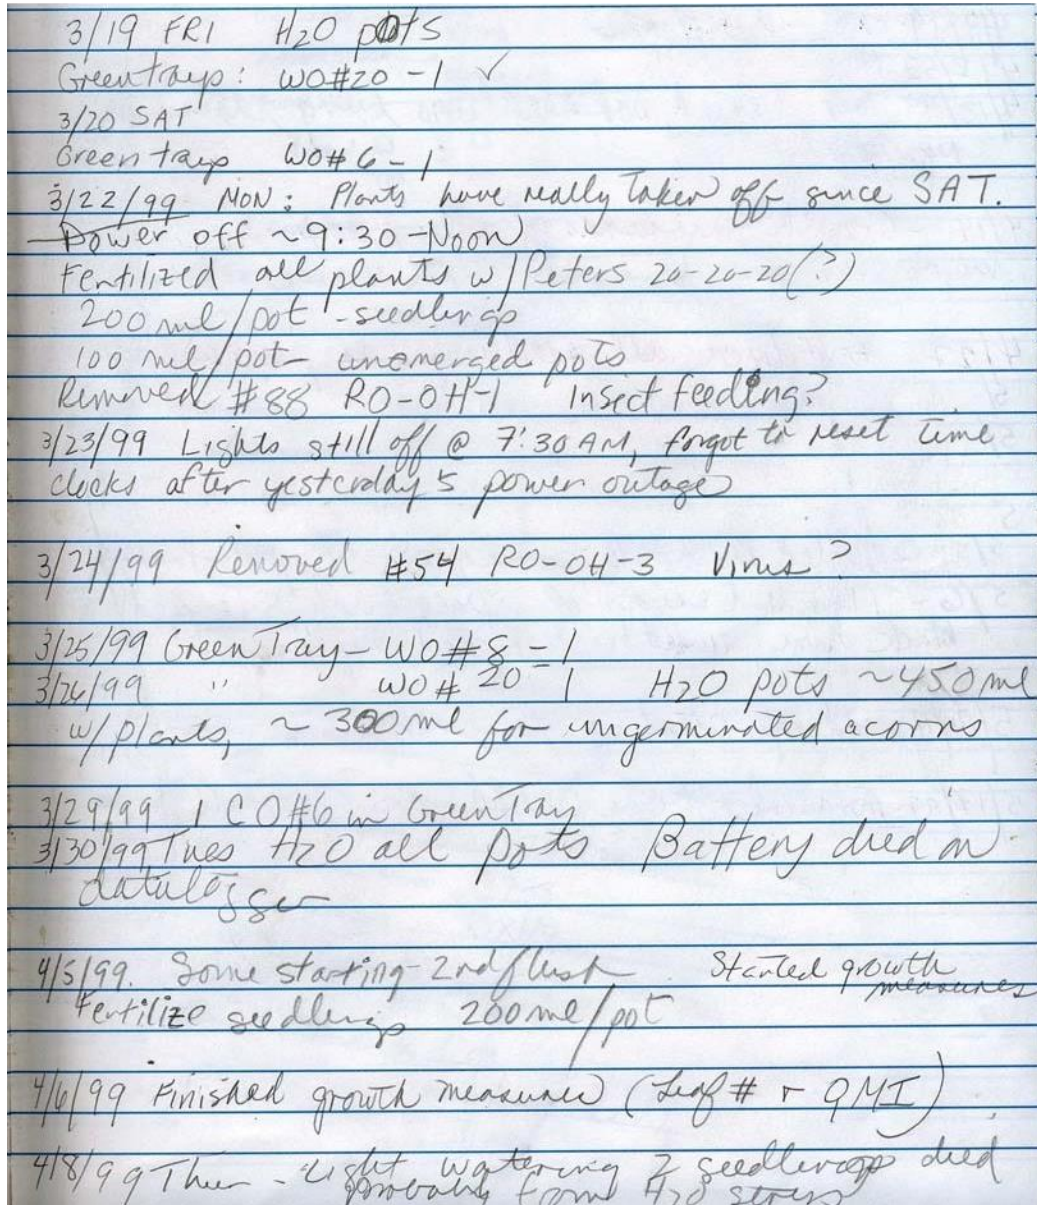 3/19 FRI H2O pots
Greentrays: WO#20-1 ✓
3/20 SAT
Green trays WO#6-1
3/22/99 MON: Plants have really taken off since SAT.
Power off ~9:30-Noon
Fertilized all plants w/Peters 20-20-20(?)
200 ml/pot - seedlings
100 ml/pot - unemerged pots
Removed #88 RO-OH-1 Insect feeding?
3/23/99 Lights still off @ 7:30 AM, forgot to reset time
clocks after yesterday's power outage
3/24/99 Removed #54 RO-OH-3 Virus?
3/25/99 Green Tray - WO#8-1
3/26/99 " WO#20-1 H2O pots ~450 ml
w/plants, ~300 ml for ungerminated acorns
3/29/99 1 CO#6 in Green Tray
3/30/99 Tues H2O all pots Battery died on
datalogger
4/5/99. Some starting 2nd flush. Started growth
measures
Fertilize seedlings 200 ml/pot
4/6/99 Finished growth measures (Leaf # + QMI)
4/8/99 Thur - Light watering 2 seedlings died
probably from H2O stress